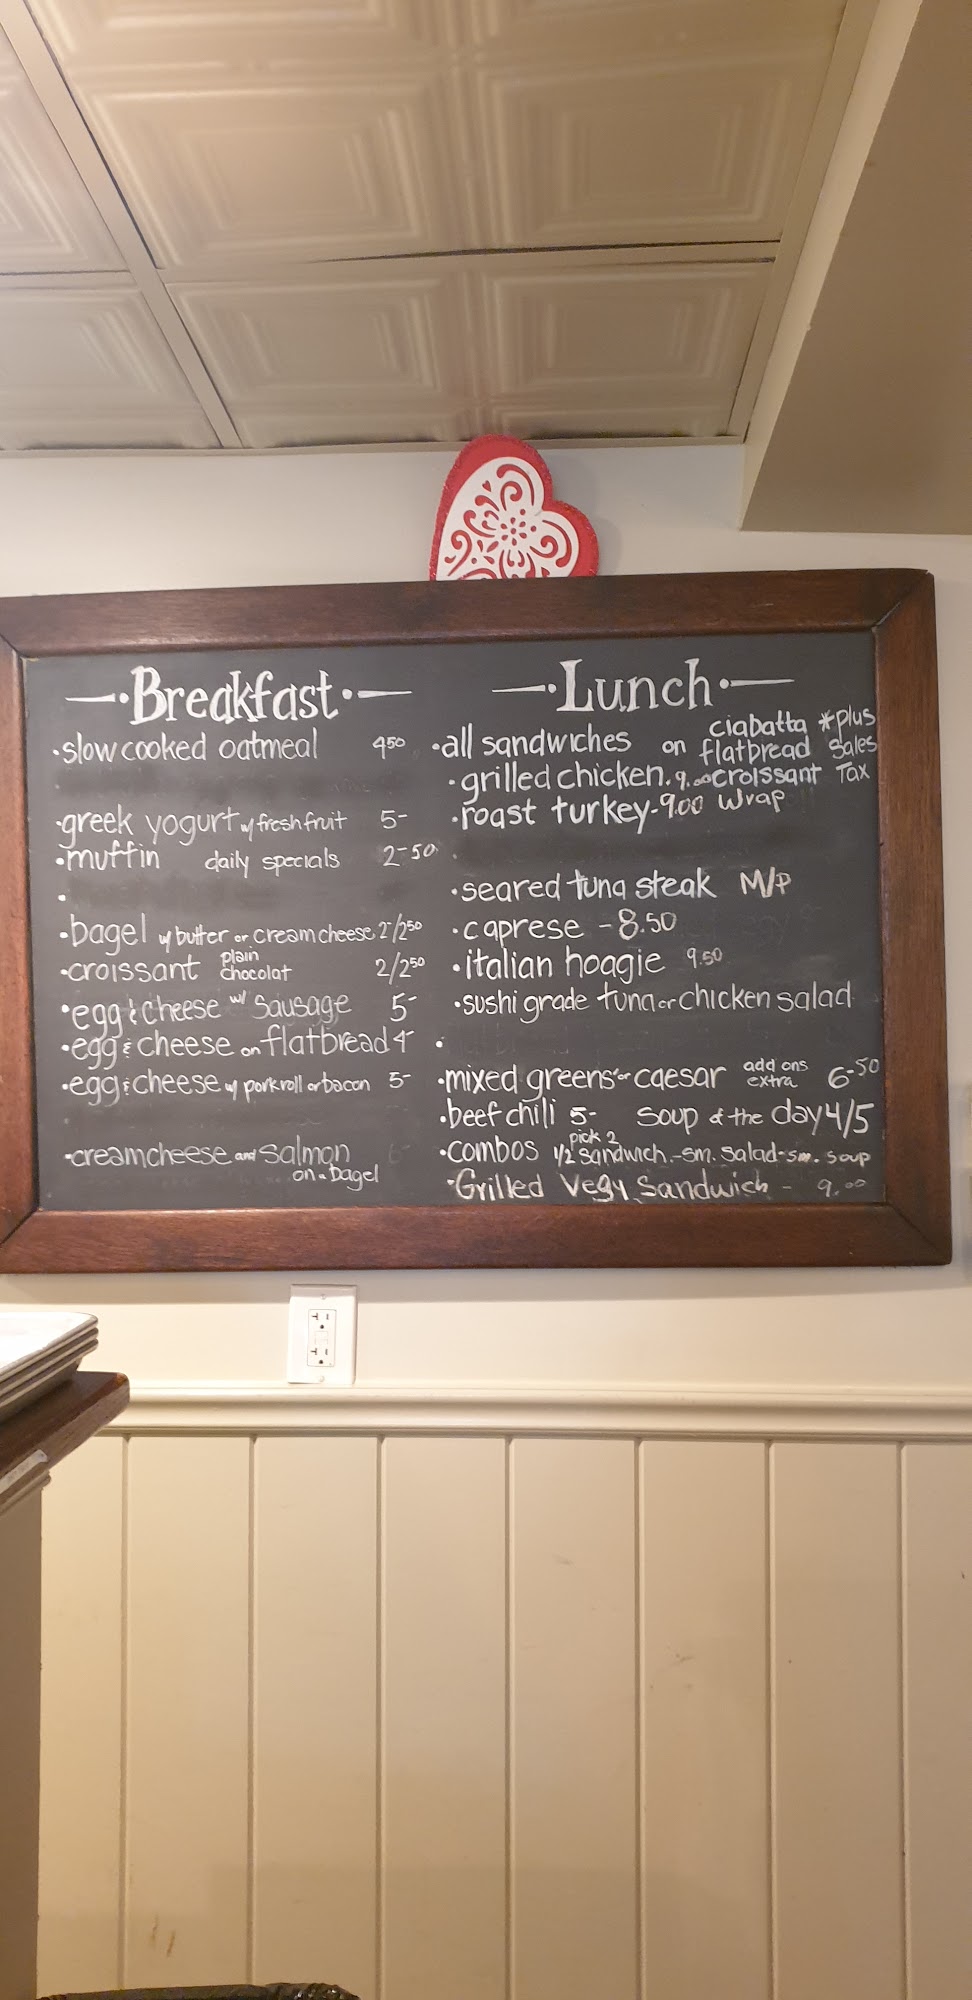 Breakfast
·slow cooked oatmeal 4.50
·greek yogurt w/ fresh fruit 5-
·muffin daily specials 2-50
·bagel w/ butter or cream cheese 2-/2.50
·croissant plain chocolat 2/2.50
·egg & cheese w/ sausage 5-
·egg & cheese on flatbread 4-
·egg & cheese w/ porkroll or bacon 5-
·creamcheese and salmon
on a bagel
Lunch
·all sandwiches on ciabatta flatbread croissant wrap
*plus sales Tax
·grilled chicken. 9.00
·roast turkey-9.00
·seared tuna steak M/P
·caprese - 8.50
·italian hoagie 9.50
·sushi grade tuna or chicken salad
·mixed greens or caesar add ons extra 6-50
·beef chili 5- soup of the day 4/5
·combos pick 2 1/2 sandwich-sm. salad-sm. soup
·Grilled Vegy Sandwich - 9.00